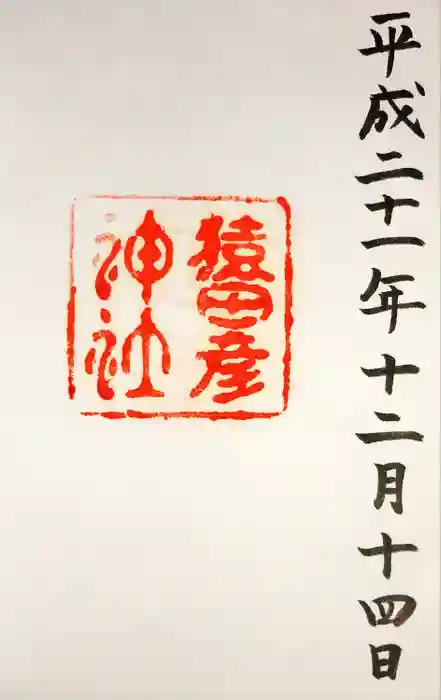 平成二十一年十二月十四日
猿田彦
神社